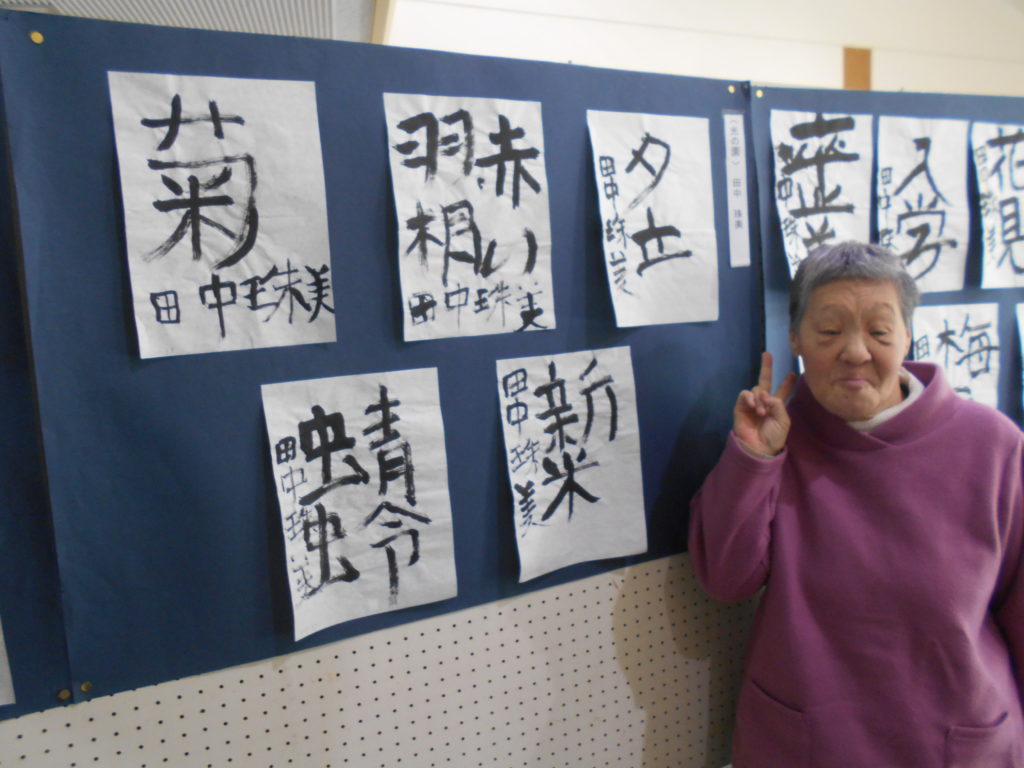 菊
田中珠美
赤い
羽相
田中珠美
夕立
田中珠美
蜻
蛉
田中珠美
新米
田中珠美
〈光の園〉 田中 珠美
田中
入学
田中
花見
梅
田